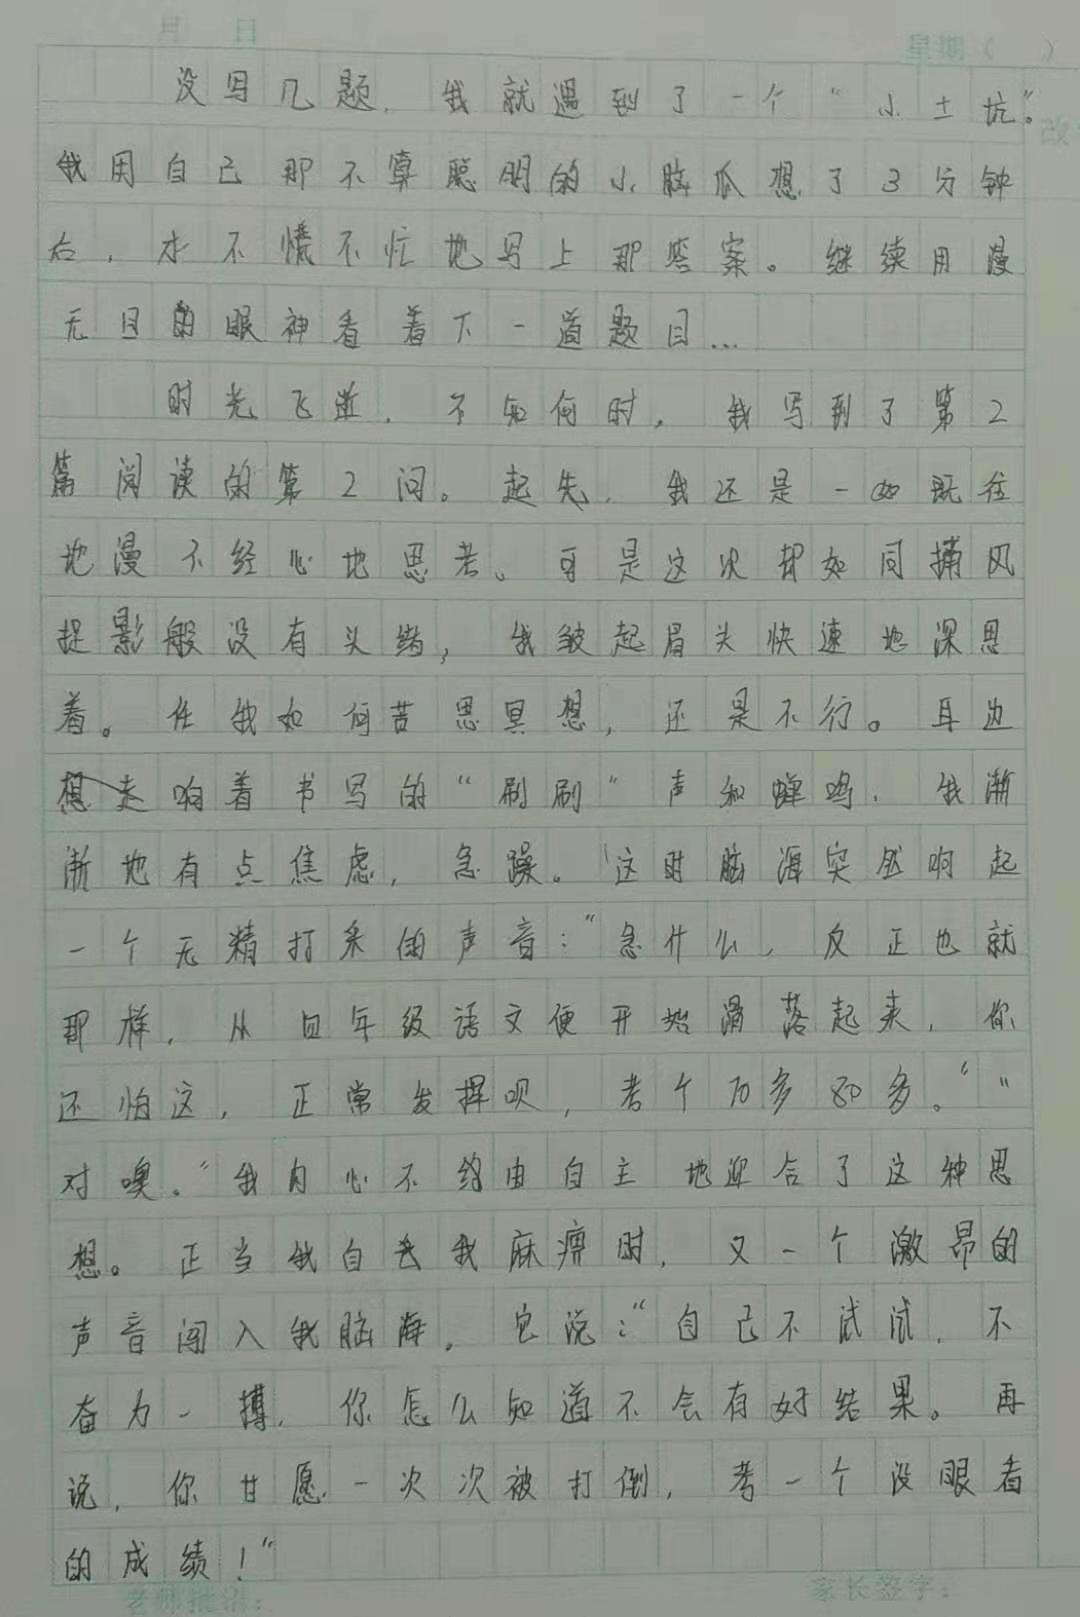 月 日
星期( )
没写几题,我就遇到了一个“小土坑”。
我用自己那不算聪明的小脑瓜想了3分钟
后,才不慌不忙地写上那答案。继续用漫
无目的眼神看着下一道题目…
时光飞逝,不知何时,我写到了第2
篇阅读的第2问。起先,我还是一如既往
地漫不经心地思考。可是这次却如同捕风
捉影般没有头绪,我皱起眉头快速地深思
着。任我如何苦思冥想,还是不行。耳边
响着书写的“刷刷”声和蝉鸣,我渐
渐地有点焦虑,急躁。这时脑海突然响起
一个无精打采的声音:“急什么,反正也就
那样,从四年级语文便开始滑落起来,你
还怕这,正常发挥呗,考个70多80多。”“
对噢。”我内心不约由自主地迎合了这种思
想。正当我自我麻痹时,又一个激昂的
声音闯入我脑海,它说:“自己不试试,不
奋力一搏,你怎么知道不会有好结果。再
说,你甘愿一次次被打倒,考一个没眼看
的成绩!”
老师批语:
家长签字: